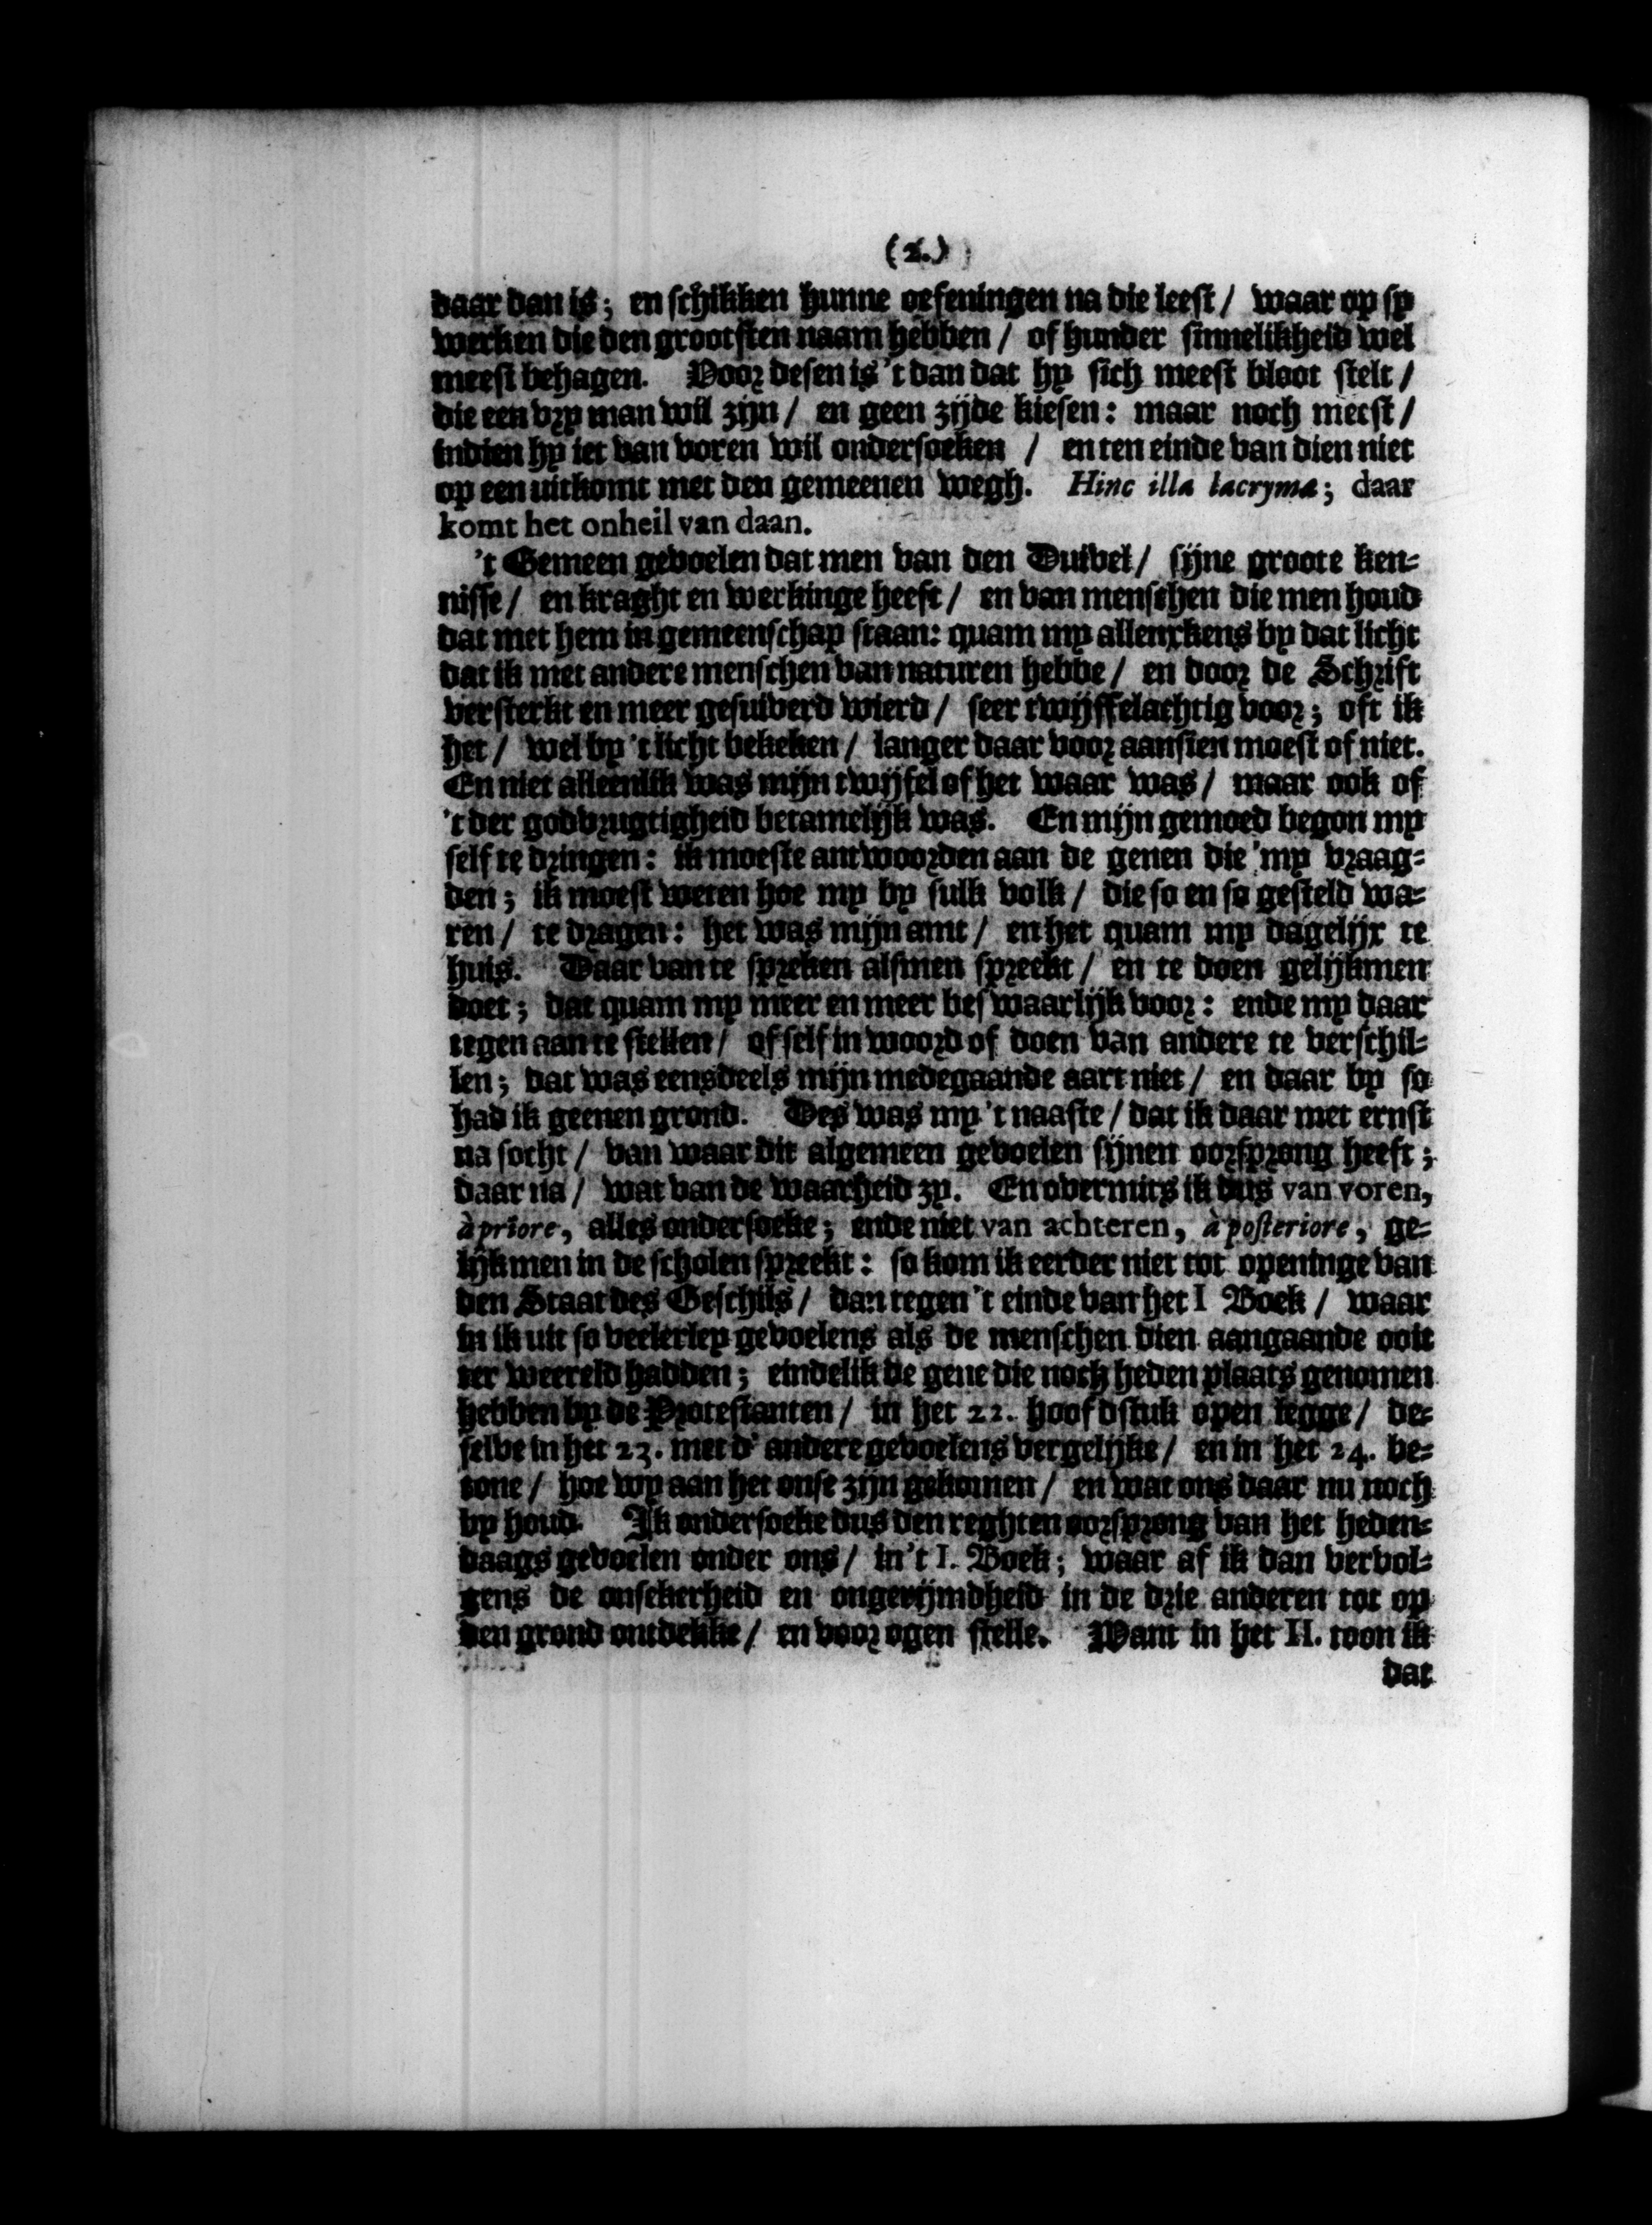 (2.)
daar van is; en schikken hunne oefeningen na die leest / waar op sy
werken die den grootsten naam hebben / of hunder sinnelikheid wel
meest behagen. Voor desen is 't dan dat hy sich meest bloot stelt /
die een vry man wil zijn / en geen zijde kiesen: maar noch meest /
indien hy iet van voren wil ondersoeken / en ten einde van dien niet
op een uitkomt met den gemeenen wegh. Hinc illa lacryma; daar
komt het onheil van daan.
't Gemeen gevoelen dat men van den Duivel / sijne groote ken-
nisse / en kraght en werkinge heeft / en van menschen die men houd
dat met hem in gemeenschap staan: quam my allenxkens by dat licht
dat ik met andere menschen van naturen hebbe / en door de Schrift
versterkt en meer gesuiverd wierd / seer twijffelachtig voor; oft ik
het / wel by 't licht bekeken / langer daar voor aansien moest of niet.
En niet alleenlik was mijn twijfel of het waar was / maar ook of
't der godvrugtigheid betamelijk was. En mijn gemoed begon my
self te dringen: ik moeste antwoorden aan de genen die my vraag-
den; ik moest weten hoe my by sulk volk / die so en so gesteld wa-
ren / te dragen: het was mijn amt / en het quam my dagelijx te
huis. Daar van te spreken alsmen spreekt / en te doen gelijkmen
doet; dat quam my meer en meer beswaarlijk voor: ende my daar
tegen aan te stellen / of self in woord of doen van andere te verschil-
len; dat was eensdeels mijn medegaande aart niet / en daar by so
had ik geenen grond. Des was my 't naaste / dat ik daar met ernst
na socht / van waar dit algemeen gevoelen sijnen oorsprong heeft;
daar na / wat van de waarheid zy. En overmits ik dus van voren,
à priore, alles ondersoeke; ende niet van achteren, à posteriore, ge-
lijkmen in de scholen spreekt: so kom ik eerder niet tot openinge van
den Staat des Geschils / dan tegen 't einde van het I Boek / waar
in ik uit so veelerley gevoelens als de menschen dien aangaande ooit
ter weereld hadden; eindelik de gene die noch heden plaats genomen
hebben by de Protestanten / in het 22. hoofdstuk open legge / de-
selve in het 23. met d' andere gevoelens vergelijke / en in het 24. be-
tone / hoe wy aan het onse zijn gekomen / en wat ons daar nu noch
by houd. Ik ondersoeke dus den reghten oorsprong van het heden-
daags gevoelen onder ons / in 't I. Boek; waar af ik dan vervol-
gens de onsekerheid en ongerijmdheid in de drie anderen tot op
den grond ontdekke / en voor ogen stelle. Want in het II. toon ik
dat